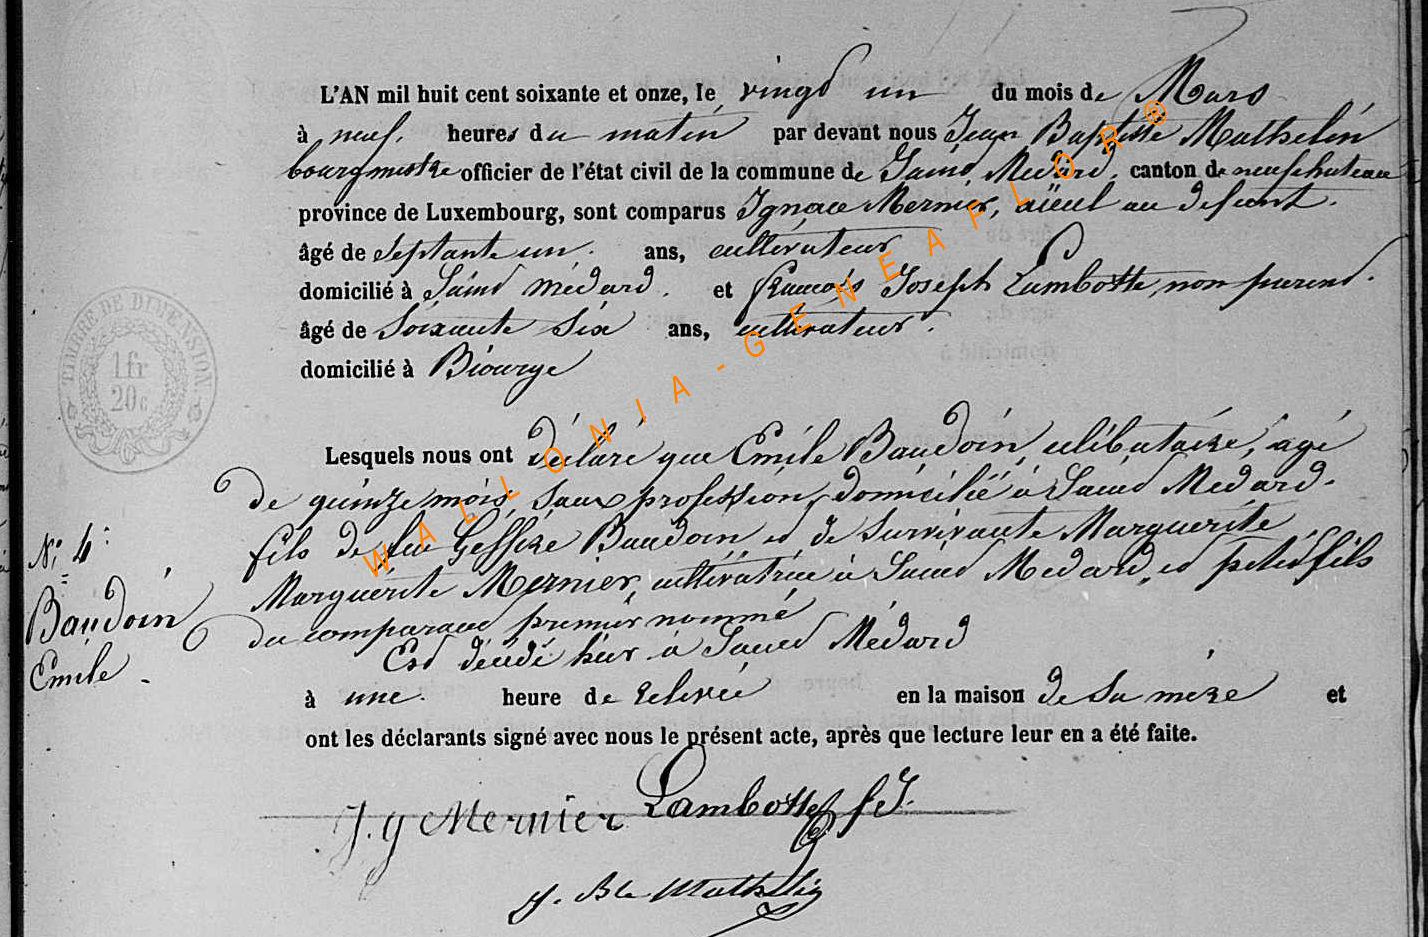 L'AN mil huit cent soixante et onze, le vingt un du mois de Mars
à neuf heures du matin par devant nous Jean Baptiste Mathelin
bourgmestre officier de l'état civil de la commune de Saint Médard, canton de neufchateau
province de Luxembourg, sont comparus Ignace Mernier, aïeul au defunt.
âgé de septante un ans, cultivateur
domicilié à Saint Médard. et francois Joseph Lambotte, non parent.
âgé de Soixante Six ans, cultivateur.
domicilié à Biourge
Lesquels nous ont déclaré que Emile Baudoin, celibataire, agé
de quinze mois, sans profession, domicilié à Saint Medard.
fils de feu Baudoin et de Survivante Marguerite
Marguerite Mernier, cultivatrice à Saint Medard, et petit fils
du comparant premier nommé
Est décédé hier à Saint Médard
à une heure de relevée en la maison de Sa mère et
ont les déclarants signé avec nous le présent acte, après que lecture leur en a été faite.
N° 4
Baudoin
Emile
TIMBRE DE DIMENSION
1 fr
20 c
J. g Mernier Lambotte f J.
J. Bte Mathelin
WALLONIA-GENEAFLOR®